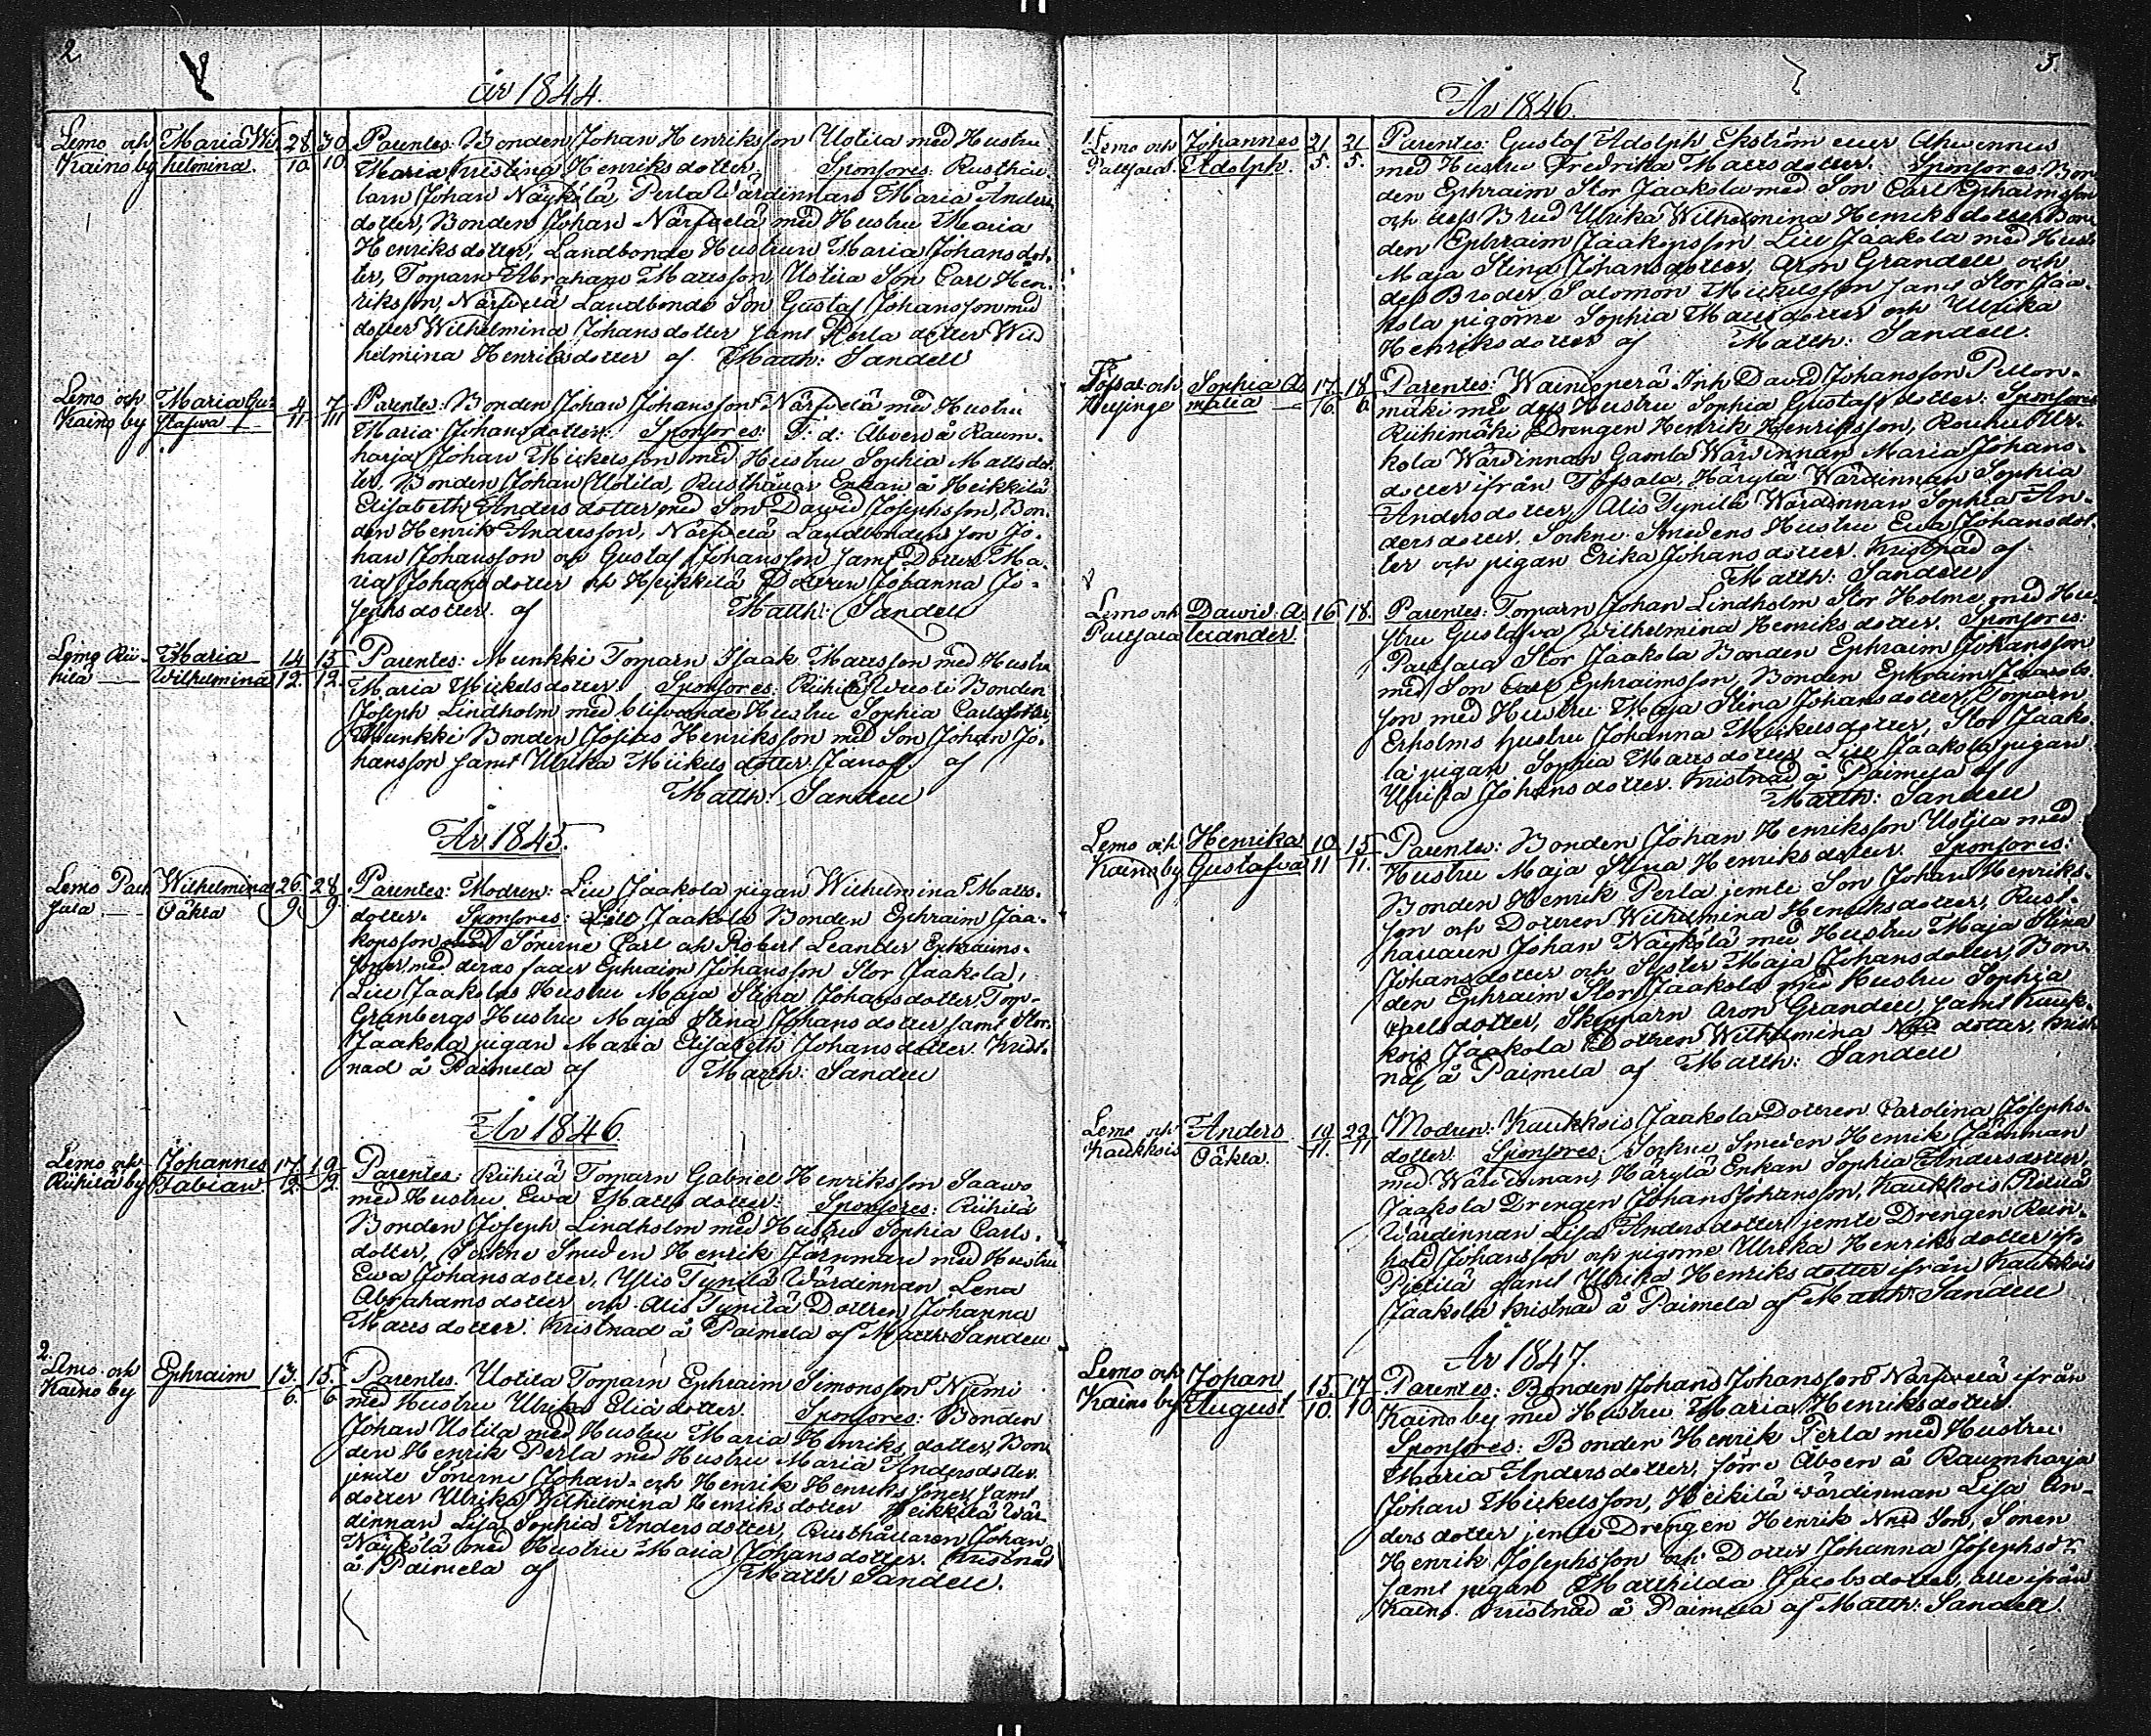 2
år 1844.
Lemo och Maria Wil 28 30 Parentes: Bonden Johan Henriksson Uotila med Hustru
Kaino by helmina. 10. 10 Maria Kristina Henriksdotter, Sponsores: Rusthål
larn Johan Näykälä, Perla Wärdinnan Maria Anders
dotter, Bonden Johan Närfvelä med Hustru Maria
Henriksdotter, Landbonde Hustrun Maria Johansdot-
ter, Torparn Abraham Mattsson, Uotila Son Carl Hen-
riksson, Närfvelä Landbonde Son Gustaf Johansson med
dotter Wilhelmina Johansdotter samt Perla dotter Wil
helmina Henriksdotter af Matth: Sandell
Lemo och Maria Gus 4 7 Parentes: Bonden Johan Johansson Närfvelä med Hustru
Kaino by tafwa 11 11 Maria Johansdotter: Sponsores: F: d: Åboen å Raum-
harja Johan Mickelsson med Hustru Sophia Mattsdot
ter. Bonden Johan Uotila, Rusthållar Enkan å Heikkilä
Elisabeth Andersdotter med Son Dawid Josephsson, Bon-
den Henrik Andersson, Närfvelä Landbonden son Jo-
han Johansson och Gustaf Johansson samt Dotter Ma-
ria Johansdotter och Heikkilä Dottren Johanna Jo-
sephsdotter. af Matth: Sandell
Lemo Rii- Maria 14 15 Parentes: Munkki Torparn Isaak Mattsson med Hustru
hilä Wilhelmina 12. 12. Maria Mickelsdotter. Sponsores: Riihilä Bonden
Joseph Lindholm med blifvande Hustru Sophia Carlsdotter,
Munkki Bonden Josias Henriksson med Son Johan Jo-
hansson samt Ulrika Mickelsdotter af
Matth: Sandell
År 1845.
Lemo Palt Wilhelmina 26. 28 Parentes: Modren: Lill Jaakola pigan Wilhelmina Matts-
sala Oäkta 9 9. dotter. Sponsores: Lill Jaakola Bonden Ephraim Jaa-
kopsson med Sönerne Carl och Robert Leander Ephraims-
söner, med deras fader Ephraim Johansson Stor Jaakola,
Lill Jaakolas Hustru Maja Stina Johansdotter, Torp-
Granbergs Hustru Maja Stina Johansdotter samt Stor
Jaakola pigan Maria Elisabeth Johansdotter. Krist-
nad å Paimela af Matth: Sandell
År 1846.
Lemo och Johannes 17. 19 Parentes: Riihilä Torparn Gabriel Henriksson Saawo
Riihilä by Fabian. 2. 2. med Hustru Ewa Mattsdotter: Sponsores: Riihilä
Bonden Joseph Lindholm med Hustru Sophia Carls-
dotter, Sockne Smeden Henrik Järnman med Hustru
Ewa Johansdotter, Ylis Tynilä Wärdinnan Lena
Abrahamsdotter, och Alis Tynilä Dottren Johanna
Mattsdotter. Kristnad å Paimela af Matth: Sandell
2.
Lemo och Ephraim 13. 15. Parentes. Uotila Torparn Ephraim Simonsson Niemi
Kaino by 6. 6 med Hustru Ulrika Eliædotter. Sponsores: Bonden
Johan Uotila med Hustru Maria Henriksdotter, Bon
den Henrik Perla med Hustru Maria Andersdotter
jemte Sönerne Johan och Henrik Henrikssöner samt
dotter Ulrika Wilhelmina Henriksdotter Heikkilä Wär
dinnan Lisa Sophia Andersdotter, Rusthållaren Johan
Näykälä med Hustru Maria Johansdotter. Kristnad
å Paimela af Matth Sandell.
3.
År 1846.
Lemo och Johannes 21 21 Parentes: Gustaf Adolph Ekström eller Ahwennus
Paltsala. Adolph. 5. 5. med Hustru Fredrika Mattsdotter. Sponsores: Bon
den Ephraim Stor Jaakola med Son Carl Ephraimsson
och dess Brud Ulrika Wilhelmina Henriksdotter Bon
den Ephraim Jaakopsson Lill Jaakola med Hustr
Maja Stina Johansdotter, Aron Grandell och
dess Broder Salomon Mickelsson samt Stor Jaa-
kola pigorne Sophia Mattsdotter och Ulrika
Henriksdotter af Matth: Sandell.
Töfsal och Sophia A 17. 18. Parentes: Wainionperä Inh David Johansson Pellon-
Helsinge malia 6. 6 mäki med dess Hustru Sophia Gustafsdotter. Sponsores
Riihimäki Drengen Henrik Henriksson,
kola Wärdinnan Gamla Wärdinnan Maria Johans-
dotter ifrån Töfsala, Härylä Wärdinnan Sophia
Andersdotter, Alis Tynilä Wärdinnan Sophia An-
dersdotter, Sockne Smedens Hustru Ewa Johansdot
ter och pigan Erika Johansdotter Kristnad af
Matth: Sandell
Lemo och Dawid A 16 18. Parentes: Torparn Johan Lindholm Stor Holme med Hu-
Paltsala lexander. stru Gustafva Wilhelmina Henriksdotter. Sponsores:
Paltsala Stor Jaakola Bonden Ephraim Johansson
med Son Carl Ephraimsson, Bonden Ephraim Jaakobs-
son med Hustru Maja Stina Johansdotter, Torparn
Erholms hustru Johanna Mickelsdotter, Stor Jaako-
la pigan Sophia Mattsdotter Lill Jaakola pigan
Ulrika Johansdotter. Kristnad å Paimela af
Matth: Sandell
Lemo och Henrika 10 15 Parentes: Bonden Johan Henriksson Uotila med
Kaino by Gustafva 11 11. Hustru Maja Stina Henriksdotter. Sponsores:
Bonden Henrik Perla jemte Son Johan Henriks-
son och Dottren Wilhelmina Henriksdotter, Rust-
hållaren Johan Näykälä med Hustru Maja Stina
Johansdotter och Syster Maja Johansdotter, Bon-
den Ephraim Stor Jaakola med Hustru Sophia
Carlsdotter, Skepparn Aron Grandell, samt Kauk-
kois Jaakola Dottren Wilhelmina dotter, Krist
nad å Paimela af Matth: Sandell
Lemo och Anders 19 22 Modren: Kaukkois Jaakola Dottren Carolina Josephs-
Kaukkois Oäkta. 11. 11 dotter. Sponsores: Sockne Smeden Henrik Järnman
med Wärdinnan, Härylä Enkan Sophia Andersdotter,
Jaakola Drengen Johan Johansson, Kaukkois Pietilä
Wärdinnan Lisa Andersdotter jemte Drengen Rein-
hold Johansson och pigorne Ulrika Henriksdotter ifr
Pietilä samt Ulrika Henriksdotter ifrån Kaukkois
Jaakola Kristnad å Paimela af Matth: Sandell
År 1847.
Lemo och Johan 15. 17 Parentes: Bonden Johan Johansson Närfvelä ifrån
Kaino by August 10. 10 Kaino by med Hustru Maria Henriksdotter.
Sponsores: Bonden Henrik Perla med Hustru
Maria Andersdotter, förre Åboen å Raumharja
Johan Mickelsson, Heikilä wärdinnan Lisa An-
dersdotter jemte Drengen Henrik Son, Sonen
Henrik Josephsson och Dotter Johanna Josephsdr
samt pigan Mathilda Jacobsdotter, alle ifrån
Kaino. Kristnad å Paimela af Matth: Sandell.